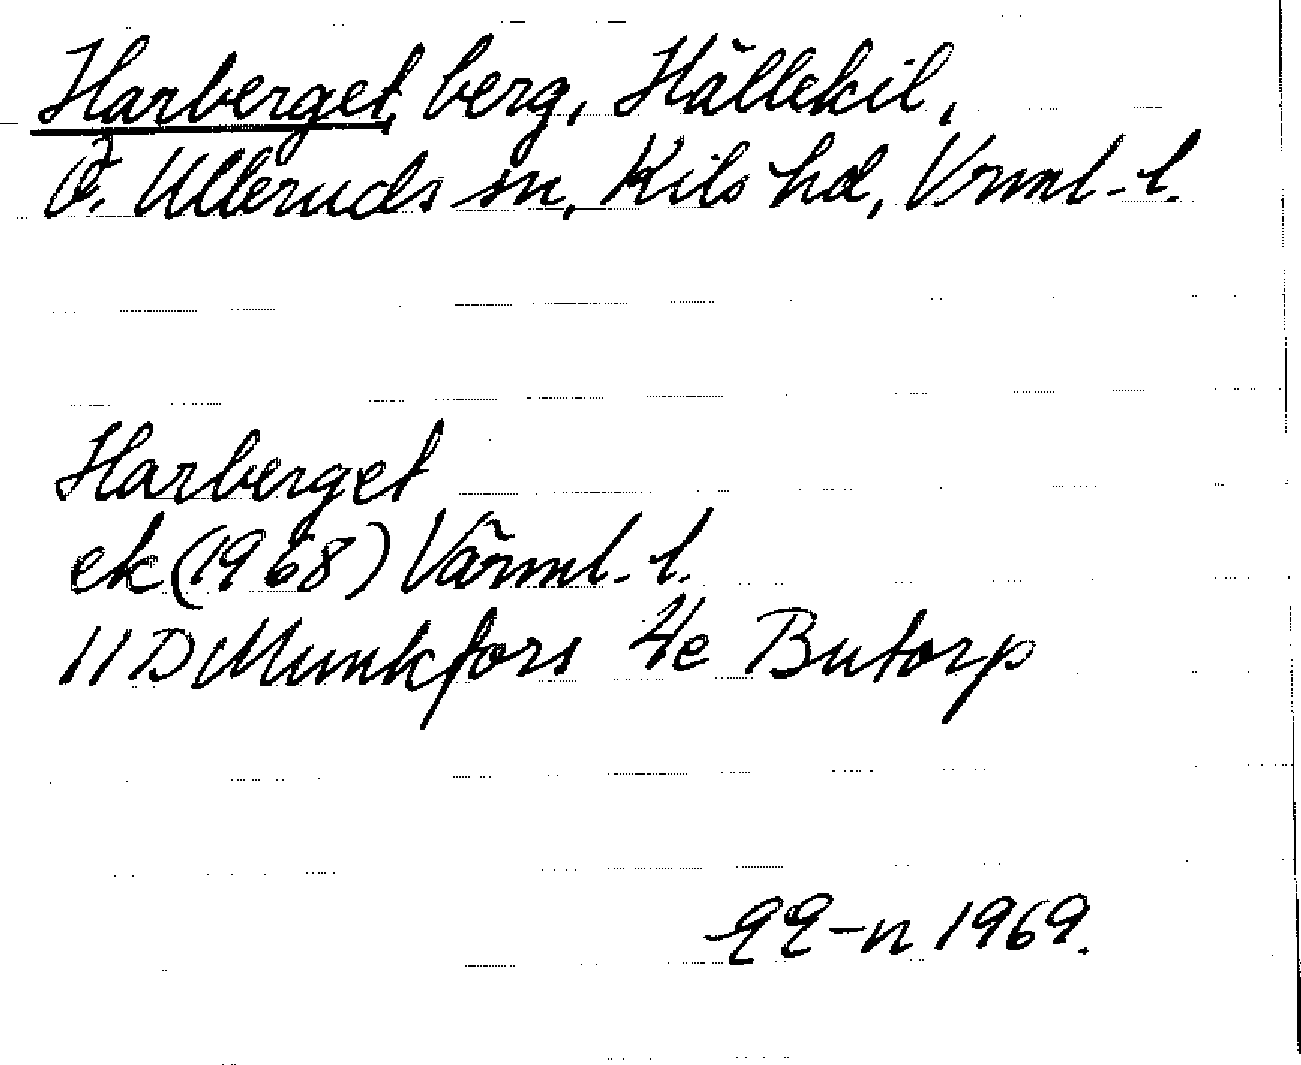 Harberget, berg, Hällekil,
Ö. Ulleruds sn, Kils hd, Vrml. l.
Harberget
ek (1968) Värml. l.
11 D Munkfors 4e Butorp
1969.